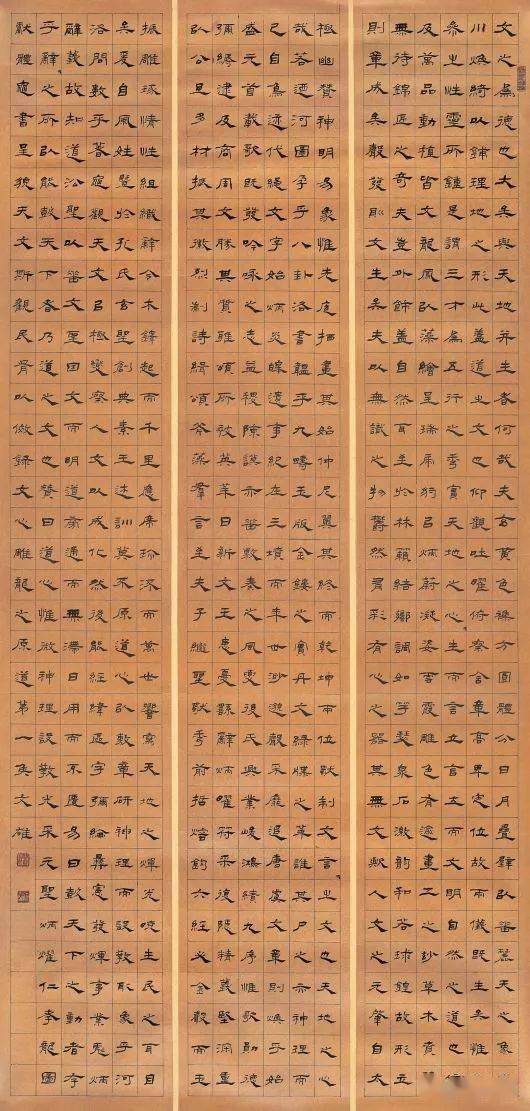 文之為德也大矣與天地并生者何哉夫玄黃色雜方圓體分日月疊璧以垂麗天之象山
川煥綺以鋪理地之形此蓋道之文也仰觀吐曜俯察含章高卑定位故兩儀既生矣惟人
參之性靈所鍾是謂三才為五行之秀實天地之心生而言立言立而文明自然之道也傍
及萬品動植皆文龍鳳以藻繪呈瑞虎豹以炳蔚凝姿雲霞雕色有踰畫工之妙草木賁華
無待錦匠之奇夫豈外飾蓋自然耳至於林籟結響調如竽瑟泉石激韻和若球鍠故形立
則章成矣聲發則文生矣夫以無識之物鬱然有彩有心之器其無文歟人文之元肇自太
極幽贊神明易象惟先庖犧畫其始仲尼翼其終而乾坤兩位獨制文言之文也天地之心
哉若迺河圖孕乎八卦洛書韞乎九疇玉版金鏤之實丹文綠牒之華誰其尸之亦神理而
已自鳥跡代繩文字始炳炎皞遺事紀在三墳而年世渺邈聲采靡追唐虞文章則煥乎始
盛元首載歌既發吟詠之志益稷陳謨亦垂敷奏之風夏后氏興業峻鴻績九序惟歌勳德
彌縟逮及商周文勝其質雅頌所被英華日新文王患憂繇辭炳曜符采複隱精義堅深重
以公旦多材振其徽烈制詩緝頌斧藻群言至夫子繼聖獨秀前哲熔鈞六經必金聲而玉
振雕琢情性組織辭令木鐸起而千里應席珍流而萬世響寫天地之輝光曉生民之耳目
矣爰自風姓暨於孔氏玄聖創典素王述訓莫不原道心以敷章研神理而設教取象乎河
洛問數乎蓍龜觀天文以極變察人文以成化然後能經緯區宇彌綸彝憲發輝事業彪炳
辭義故知道沿聖以垂文聖因文而明道旁通而無滯日用而不匱易曰鼓天下之動者存
乎辭之所以能鼓天下者乃道之文也贊曰道心惟微神理設教光采元聖炳耀仁孝龍圖
獻體龜書呈貌天文斯觀民胥以傚錄文心雕龍之原道第一